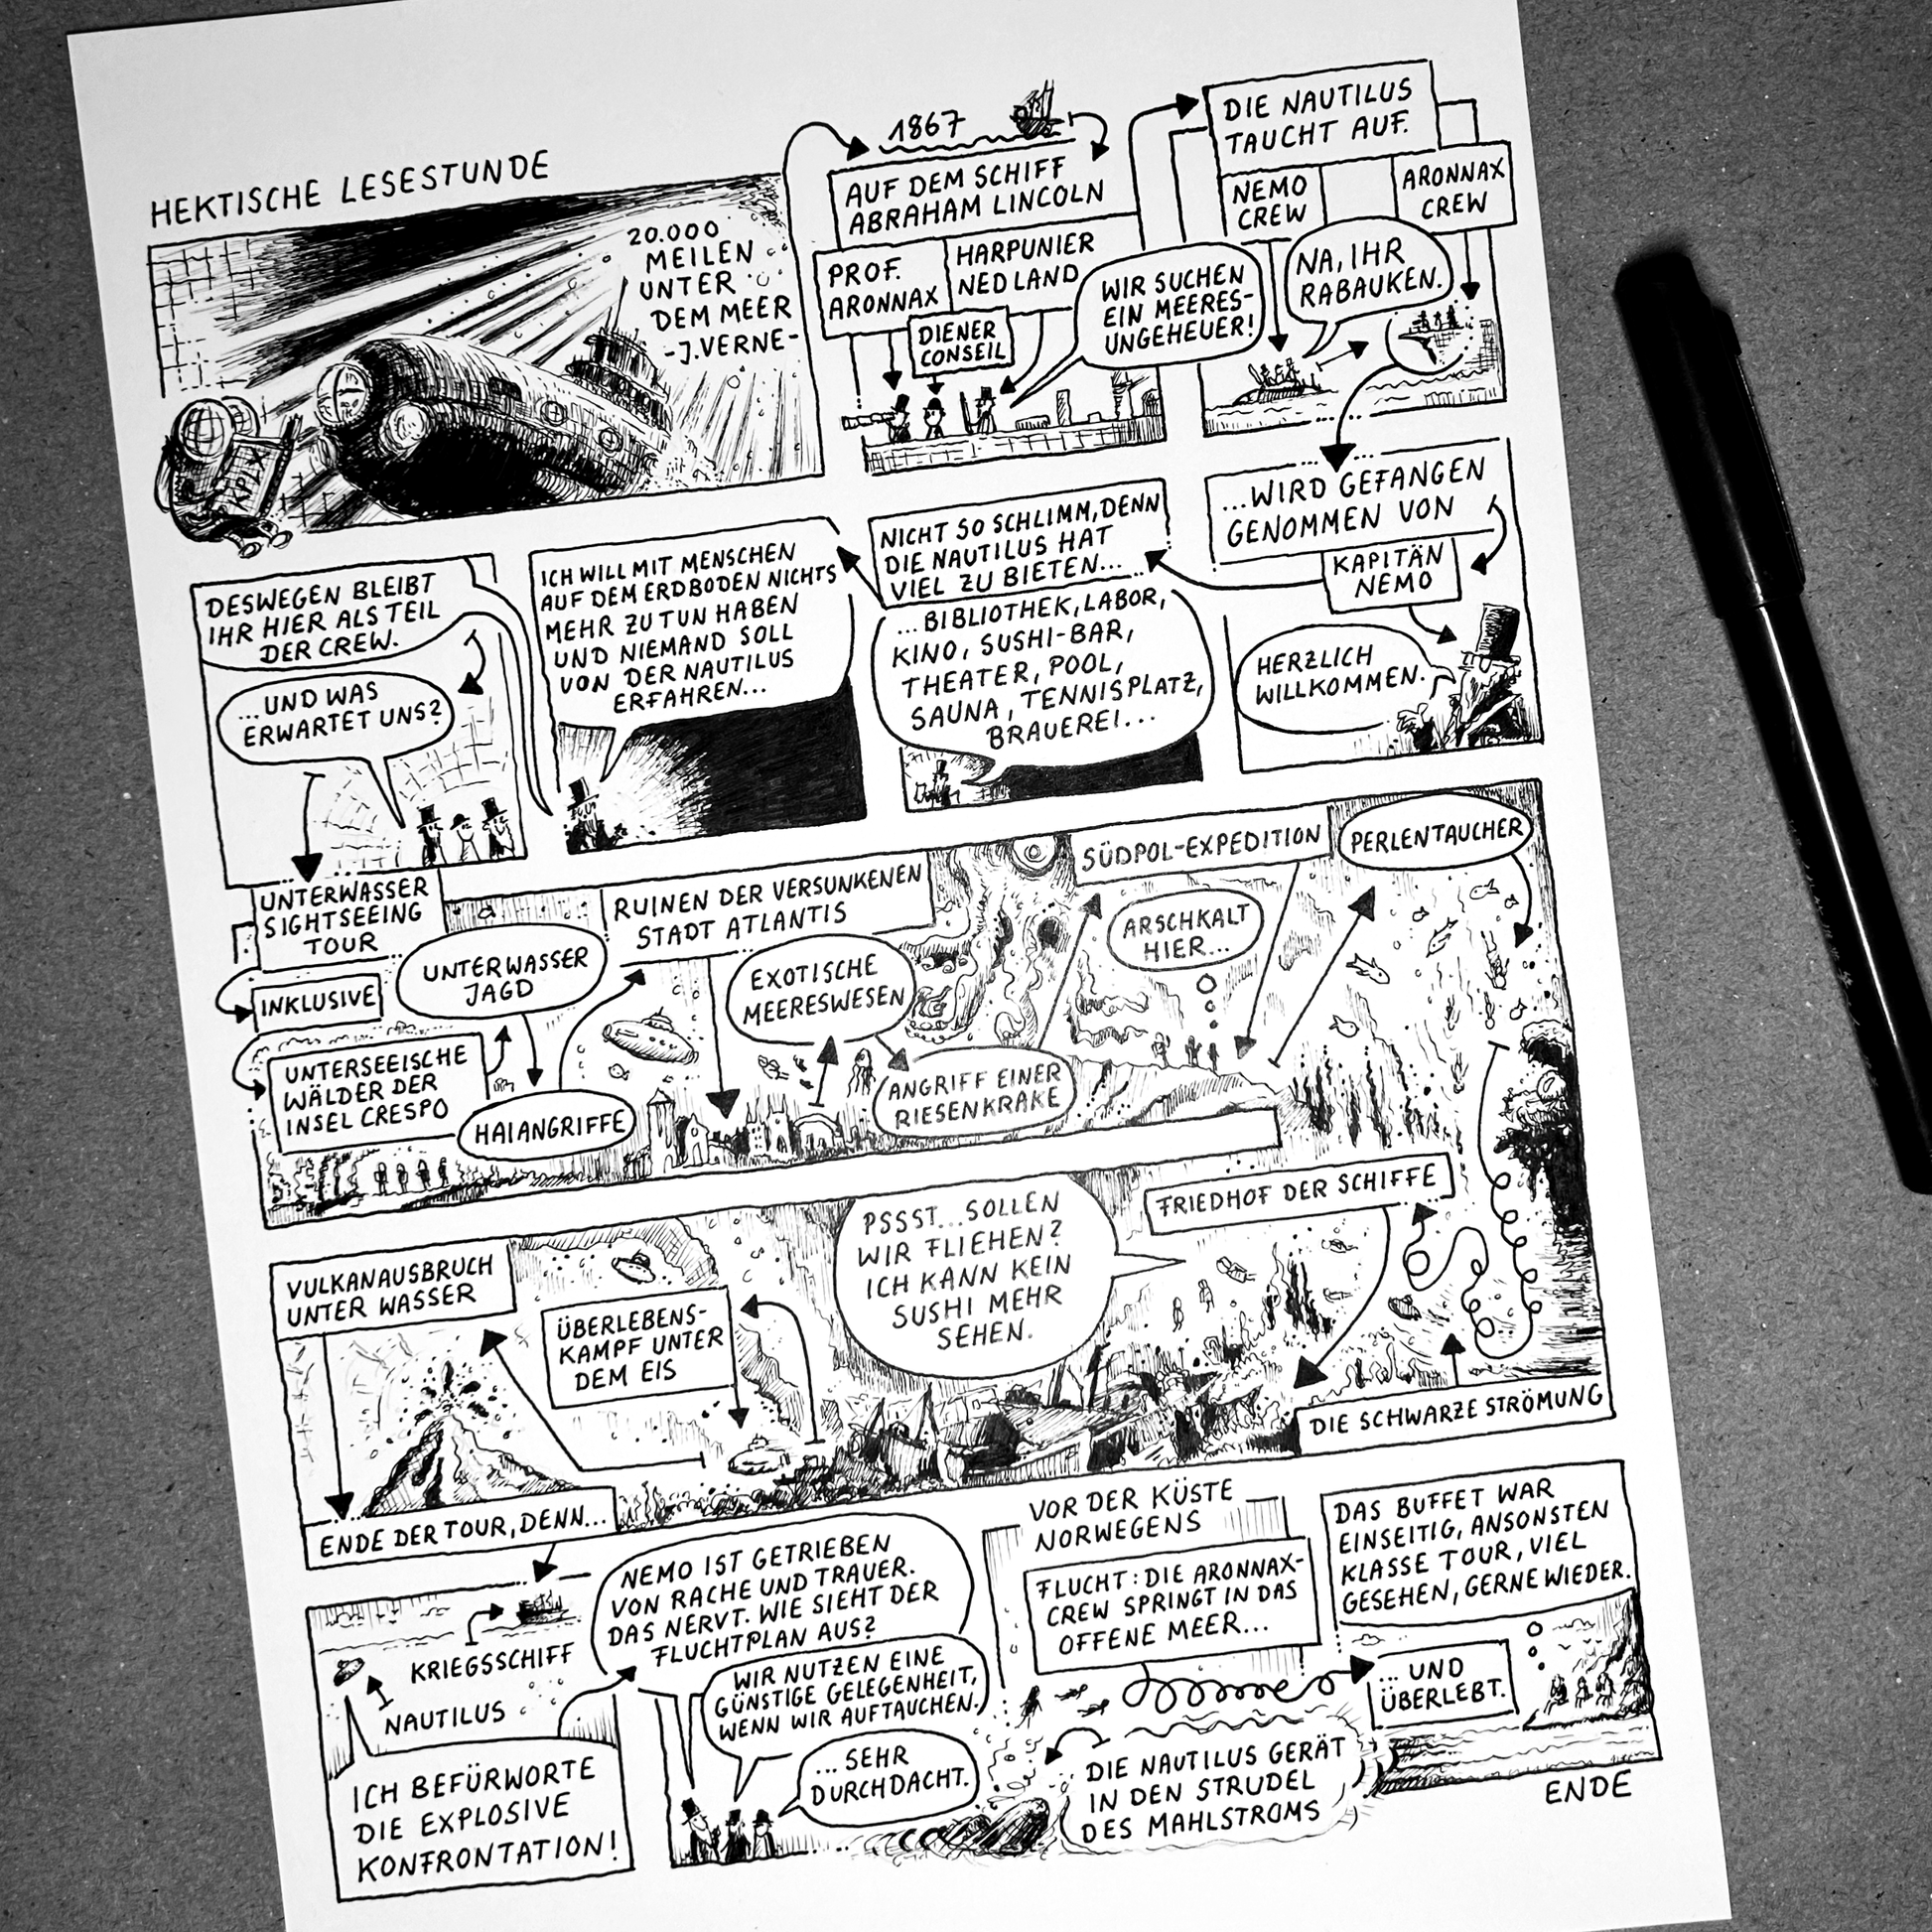 HEKTISCHE LESESTUNDE
20.000
MEILEN
UNTER
DEM MEER
-J.VERNE-
KPLX
1867
AUF DEM SCHIFF
ABRAHAM LINCOLN
PROF.
ARONNAX
HARPUNIER
NED LAND
DIENER
CONSEIL
WIR SUCHEN
EIN MEERES-
UNGEHEUER!
DIE NAUTILUS
TAUCHT AUF.
NEMO
CREW
ARONNAX
CREW
NA, IHR
RABAUKEN.
...WIRD GEFANGEN
GENOMMEN VON
KAPITÄN
NEMO
HERZLICH
WILLKOMMEN.
NICHT SO SCHLIMM, DENN
DIE NAUTILUS HAT
VIEL ZU BIETEN...
...BIBLIOTHEK, LABOR,
KINO, SUSHI-BAR,
THEATER, POOL,
SAUNA, TENNISPLATZ,
BRAUEREI...
ICH WILL MIT MENSCHEN
AUF DEM ERDBODEN NICHTS
MEHR ZU TUN HABEN
UND NIEMAND SOLL
VON DER NAUTILUS
ERFAHREN...
DESWEGEN BLEIBT
IHR HIER ALS TEIL
DER CREW.
...UND WAS
ERWARTET UNS?
UNTERWASSER
SIGHTSEEING
TOUR
INKLUSIVE
UNTERSEEISCHE
WÄLDER DER
INSEL CRESPO
UNTERWASSER
JAGD
HAIANGRIFFE
RUINEN DER VERSUNKENEN
STADT ATLANTIS
EXOTISCHE
MEERESWESEN
ANGRIFF EINER
RIESENKRAKE
SÜDPOL-EXPEDITION
ARSCHKALT
HIER...
PERLENTAUCHER
DIE SCHWARZE STRÖMUNG
FRIEDHOF DER SCHIFFE
PSSST...SOLLEN
WIR FLIEHEN?
ICH KANN KEIN
SUSHI MEHR
SEHEN.
ÜBERLEBENS-
KAMPF UNTER
DEM EIS
VULKANAUSBRUCH
UNTER WASSER
ENDE DER TOUR, DENN...
KRIEGSSCHIFF
NAUTILUS
ICH BEFÜRWORTE
DIE EXPLOSIVE
KONFRONTATION!
NEMO IST GETRIEBEN
VON RACHE UND TRAUER.
DAS NERVT. WIE SIEHT DER
FLUCHTPLAN AUS?
WIR NUTZEN EINE
GÜNSTIGE GELEGENHEIT,
WENN WIR AUFTAUCHEN.
...SEHR
DURCHDACHT.
VOR DER KÜSTE
NORWEGENS
FLUCHT: DIE ARONNAX-
CREW SPRINGT IN DAS
OFFENE MEER...
DIE NAUTILUS GERÄT
IN DEN STRUDEL
DES MAHLSTROMS
...UND
ÜBERLEBT.
DAS BUFFET WAR
EINSEITIG, ANSONSTEN
KLASSE TOUR, VIEL
GESEHEN, GERNE WIEDER.
ENDE